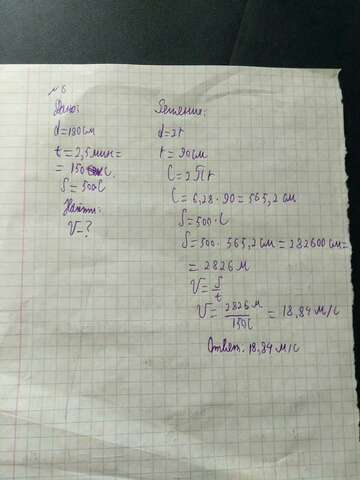 №6
Дано:
d=180см
t=2,5мин=
=150с.
S=500C
Найти:
V-?
Решение:
d=2r
r=90см
C=2πr
C=6,28·90=565,2см
S=500·C
S=500·565,2см=282600см=
=2826м
V=S/t
V=2826м/150с=18,84м/с
Ответ. 18,84м/с